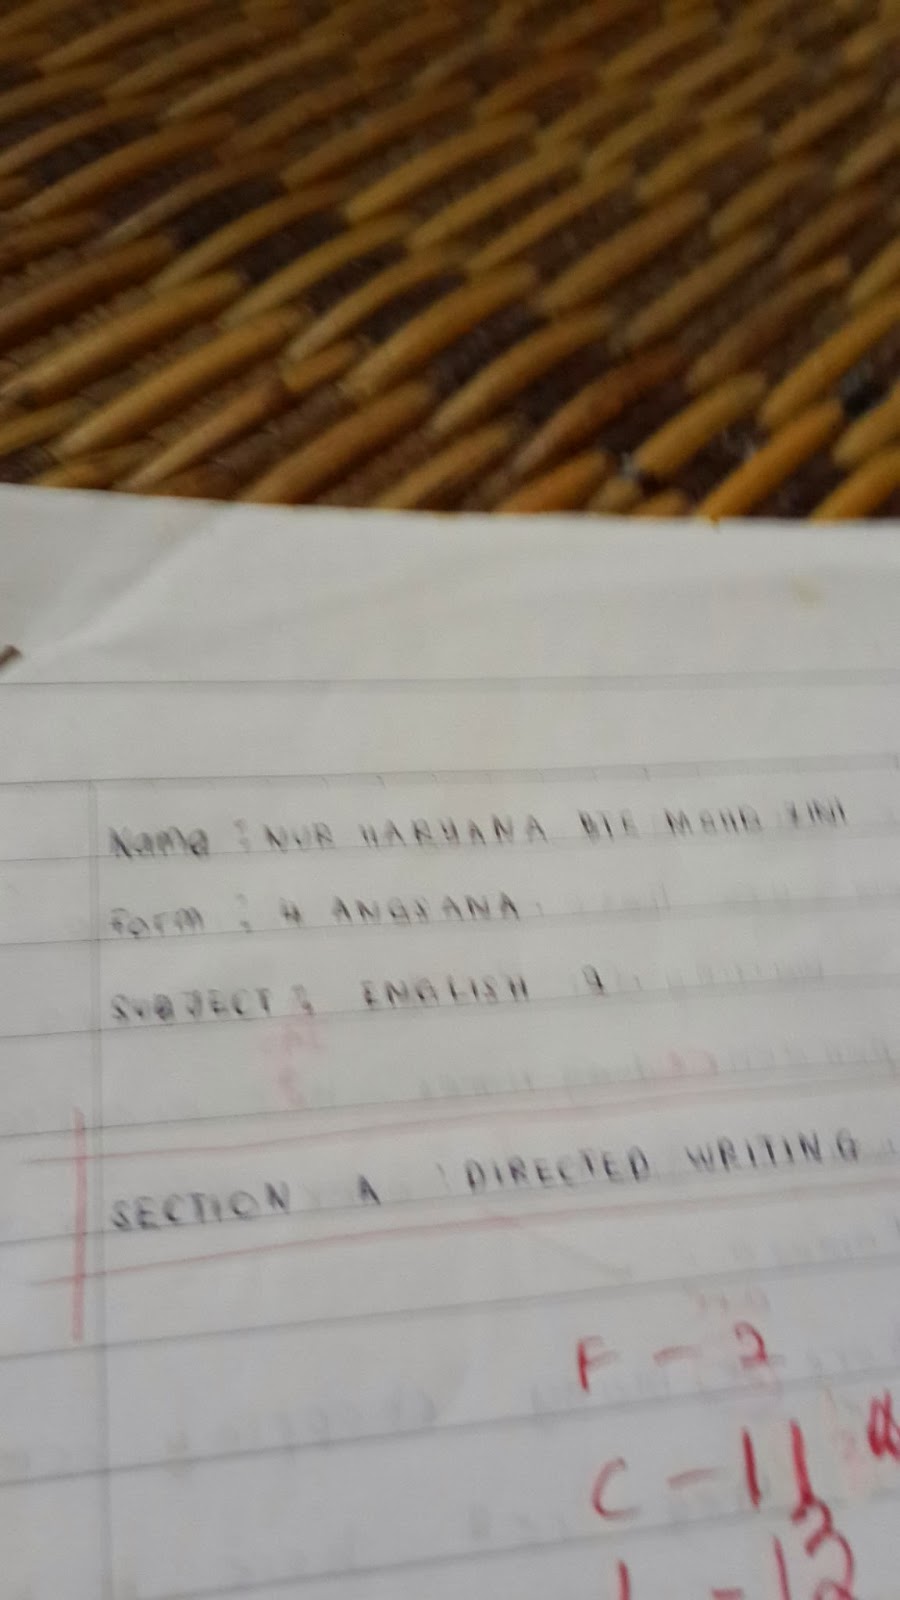 Name : NUR HARYANA BTE MOHD
Form : 4 ANGSANA
SUBJECT : ENGLISH
SECTION A : DIRECTED WRITING
F - 2
C - 11